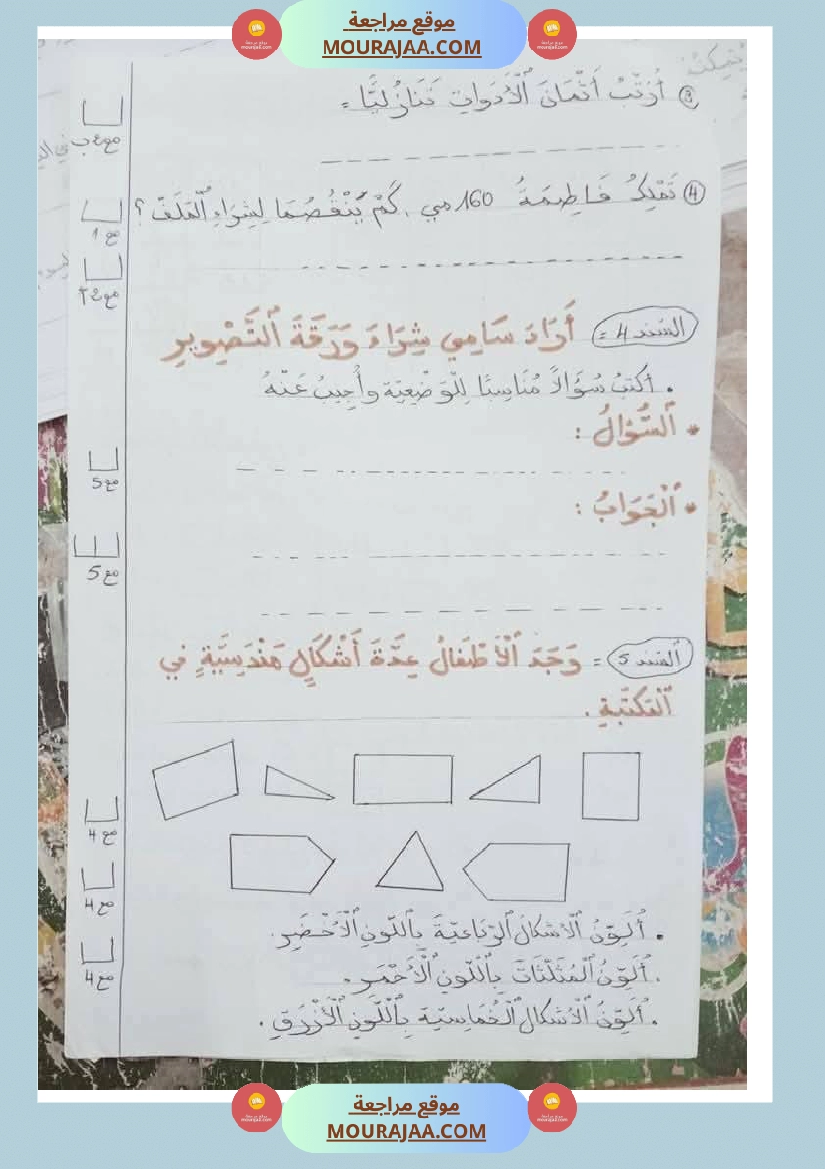 موقع مراجعة
MOURAJAA.COM
③ أُرَتِّبُ أَثْمَانَ ٱلْأَدَوَاتِ تَنَازُلِيًّا =
④ تَمْلِكُ فَاطِمَةُ 160 مي . كَمْ يَنْقُصُهَا لِشِرَاءِ ٱلْمَلَفِّ ؟
مع 1
السّند 4 = أَرَادَ سَامِي شِرَاءَ وَرَقَةَ ٱلتَّصْوِيرِ
. أكتبُ سُؤَالاً مُنَاسِبًا لِلْوَضْعِيّة وأُجِيبُ عَنْهُ
* ٱلسُّؤَالُ :
مع 5
* ٱلْجَوَابُ :
مع 5
ٱلسّند 5 = وَجَدَ ٱلْأَطْفَالُ عِدَّةَ أَشْكَالٍ هَنْدَسِيَّةٍ فِي
ٱلْمَكْتَبَةِ .
مع 4
مع 4
. أُلَوِّنُ ٱلْأَشْكَالَ ٱلرُّبَاعِيَّةَ بِٱللَّوْنِ ٱلْأَخْضَرِ .
مع 4
. أُلَوِّنُ ٱلْمُثَلَّثَاتَ بِٱللَّوْنِ ٱلْأَحْمَرِ .
. أُلَوِّنُ ٱلْأَشْكَالَ ٱلْخُمَاسِيَّةَ بِٱللَّوْنِ ٱلْأَزْرَقِ .
موقع مراجعة
MOURAJAA.COM